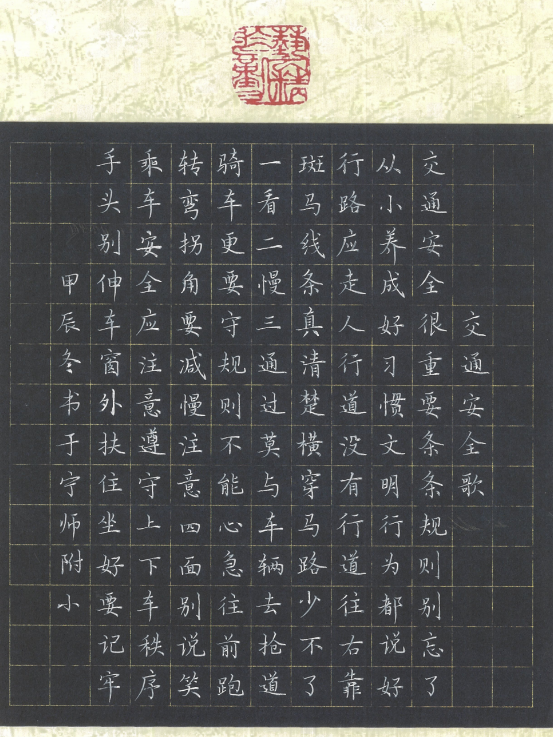 交通安全歌
交通安全很重要条条规则别忘了
从小养成好习惯文明行为都说好
行路应走人行道没有行道往右靠
斑马线条真清楚横穿马路少不了
一看二慢三通过莫与车辆去抢道
骑车更要守规则不能心急往前跑
转弯拐角要减慢注意四面别说笑
乘车安全应注意遵守上下车秩序
手头别伸车窗外扶住坐好要记牢
甲辰冬书于宁师附小